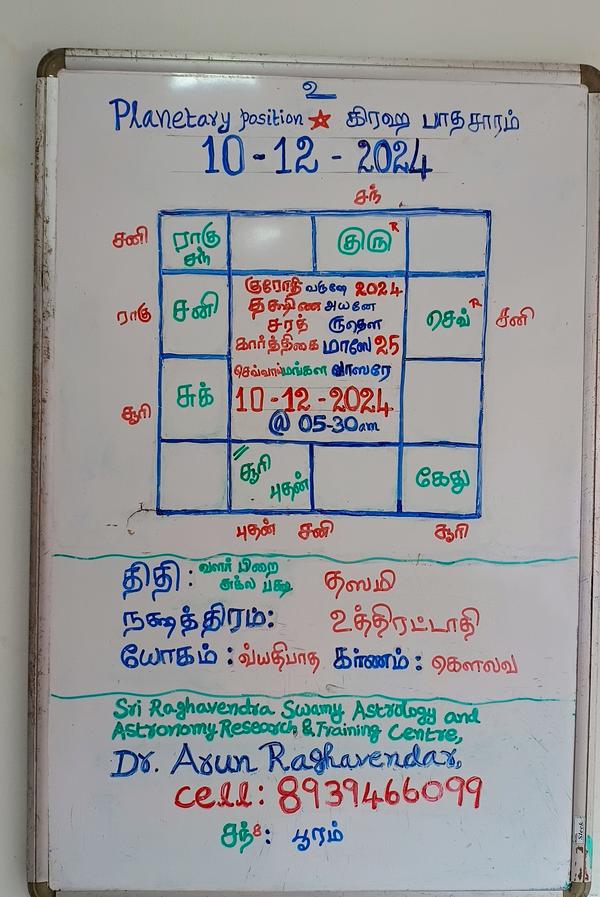 உ
Planetary position ★ கிரஹ பாதசாரம்
10-12-2024
சந்
சனி ராகு சந் குரு R
ராகு சனி செவ் R சனி
குரோதி வருஷே 2024
தக்ஷிண அயனே
சரத் ருதௌ
கார்த்திகை மாஸே 25
செவ்வாய் மங்கள வாஸரே
சூரி சுக் 10-12-2024
@ 05-30am
சூரி புதன் கேது
புதன் சனி சூரி
திதி: வளர் பிறை சுக்ல பக்ஷ தஸமி
நக்ஷத்திரம்: உத்திரட்டாதி
யோகம்: வ்யதிபாத கர்ணம்: கௌலவ
Sri Raghavendra Swamy Astrology and
Astronomy Research & Training Centre,
Dr. Arun Raghavendar,
cell: 8939466099
சந் 8: பூரம்